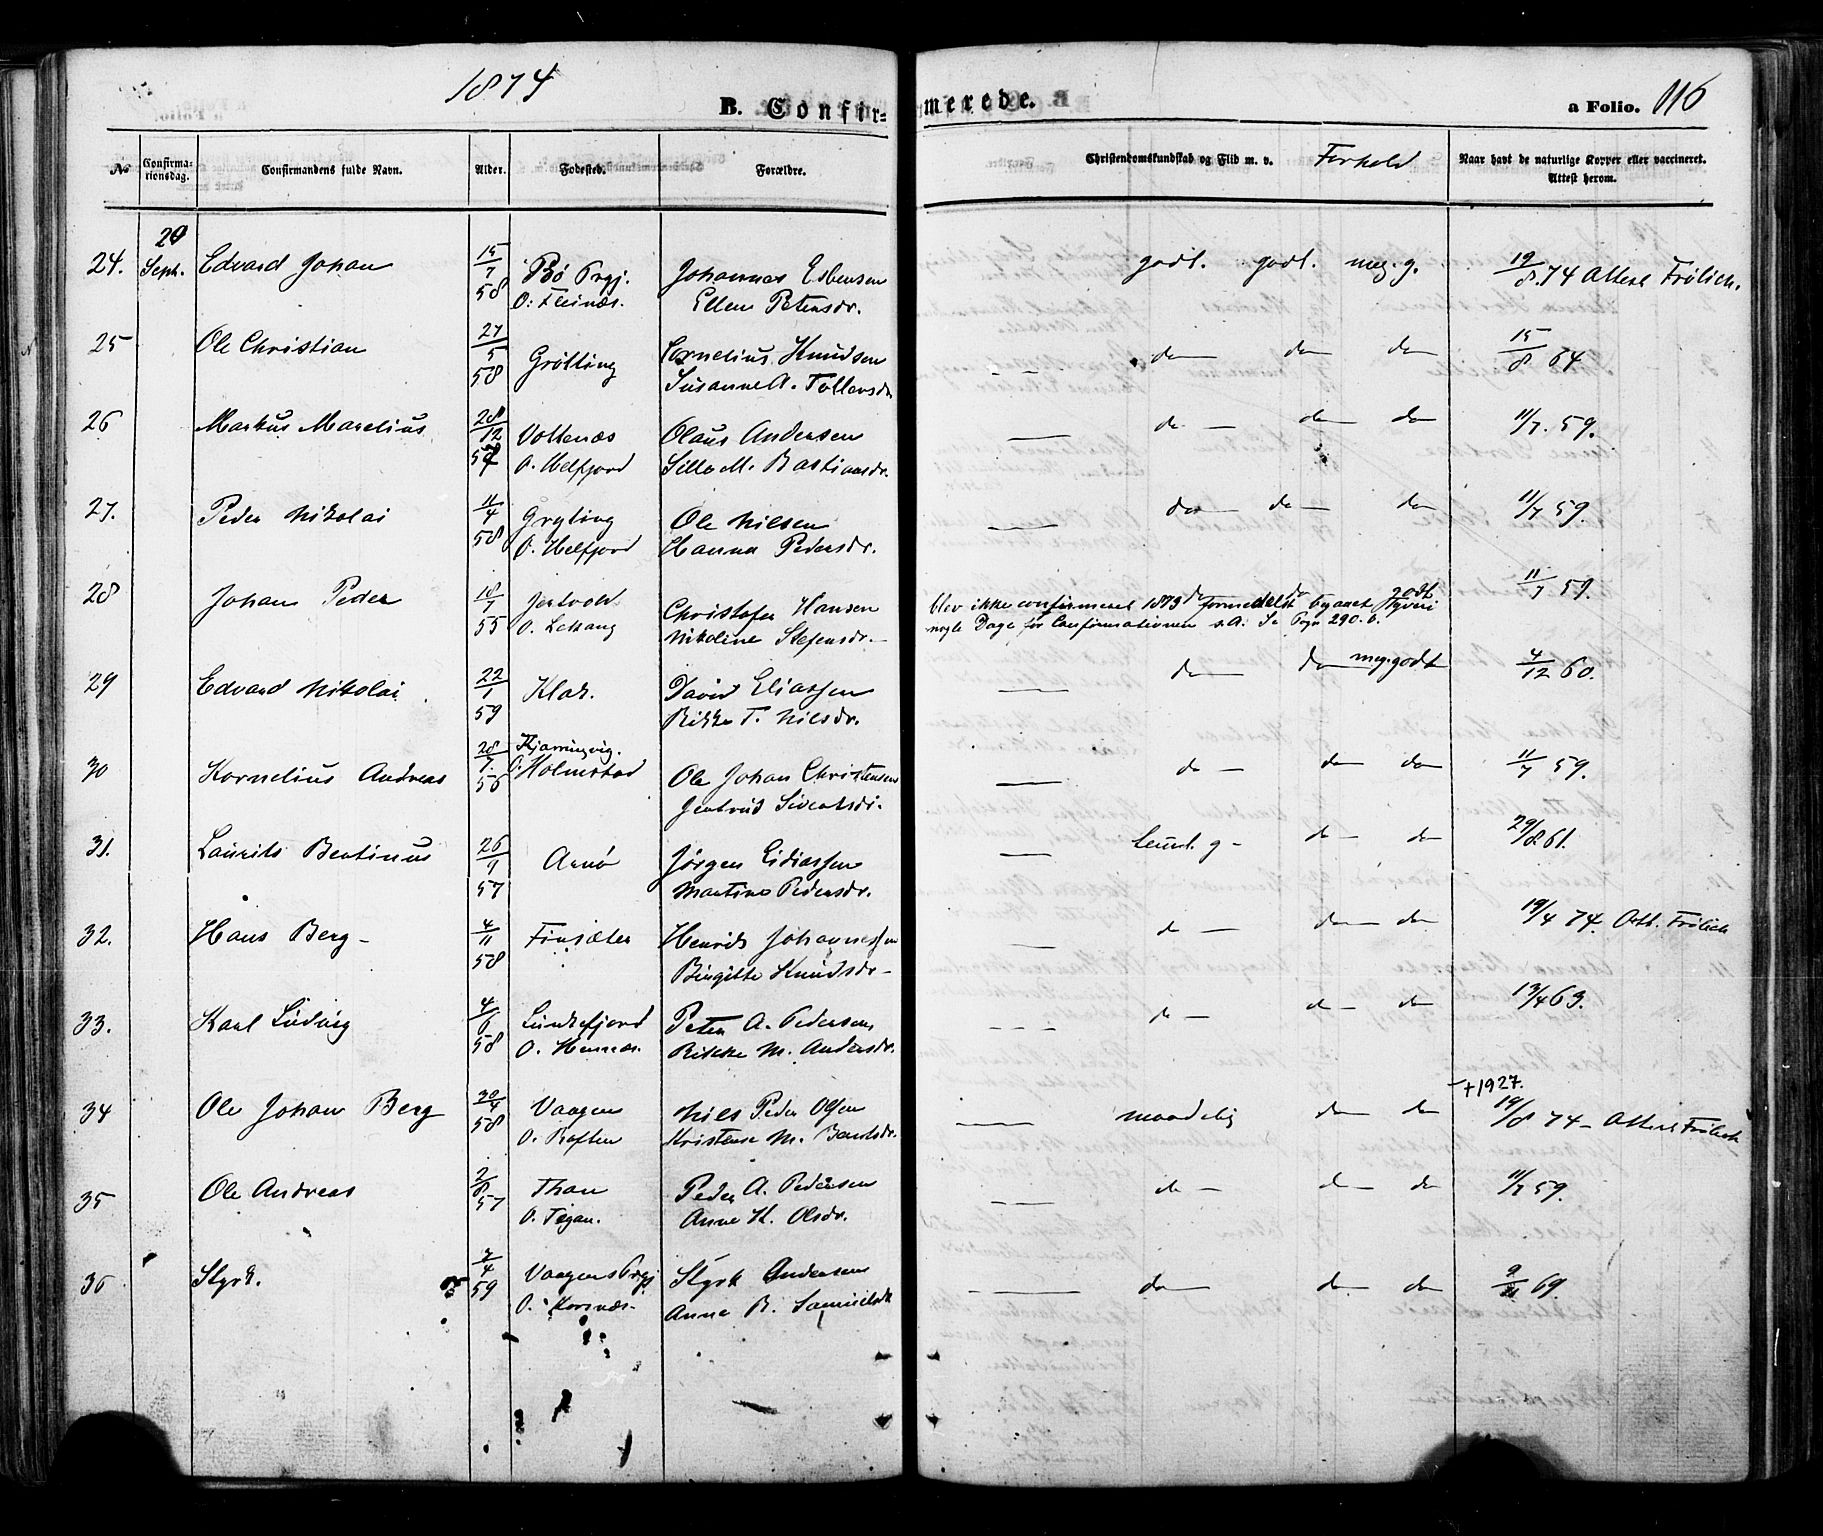 1874
B. Confirmerede.
a Folio. 116
No
Confirma-
tionsdag.
Confirmandens fulde Navn.
Alder.
Fødested.
Forældre.
Christendomskundskab og Flid m. v.
Forhold
Naar havt de naturlige Kopper eller vaccineret.
Attest herom.
24. 20 Sept. Edvard Johan 15/7 58 Bø Prgj. O: Fleinæs. Johannes Esbensen
Ellen Petersdr. godt. godt. meg. g. 19/8. 74 Attest Frølich.
25 Ole Christian 27/5 58 Grøtting Cornelius Knudsen
Susanne A. Tollevsdr do do do 15/8 64.
26 Markus Marelius 28/12 57 Vottenæs
O. Melfjord Olaus Andersen
Sille M. Bastiansdr. do do do 11/7. 59.
27. Peder Nikolai 11/4 58 Grytting
O. Melfjord Ole Nilsen
Hanna Pedersdr. do do do 11/7 59.
28 Johan Peder 18/7 55 O. Christofer Hansen
Nikoline Stefensdr. godt 11/7 59.
blev ikke confirmeret 1873 formedelst begaaet Tyveri
nogle Dage før Confirmationen s. A. Se Pag. 290. b.
29 Edvard Nikolai 22/1 59 Klak. David Eliassen
Rikke T. Nilsdr. do do meg. godt 4/12 60.
30 Kornelius Andreas 28/7. Kjærringvig.
O. Holmstad Ole Johan Christensen
Jertrud Sivertsdr. do do do 11/7 59.
31. Laurits Bertinus 26/9 57 Arnø Jørgen Eidiassen
Martine Pedersdr. temml. g do do 29/8 61.
32. Hans Berg 4/11 58 Finsæter Henrik Johannessen
Birgitte Knudsdr do do do 19/4 74. Att. Frølich
33. Karl Ludvig 4/6 58 Lundefjord
O. Hennes. Peter A. Pedersen
Rikke M. Andersdr. do do do 13/4 63.
34 Ole Johan Berg 30/4 58 Vaagen
O. Raften Nils Peder Olsen
Kristense M. Bentsdr. maadelig do do +1927.
19/8 74 Attest Frølich
35 Ole Andreas 2/8 57 Than
O. Tegan. Peder A. Pedersen
Anne K. Olsdr. do do do 11/7 59.
36 Styrk. 7/4 59 Vaagens Prgj
O. Korsnæs. Styrk Andersen
Anne B. Samuelsdr do do do 9/11 69.